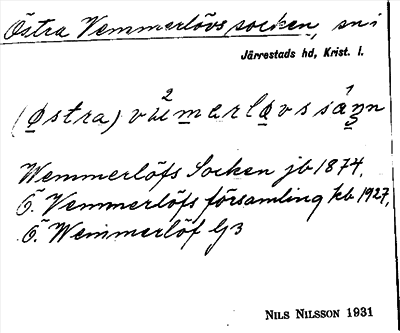 Östra Vemmerlövs socken, sn i
Järrestads hd, Krist. l.
(østra) væ²mərløvsså´ŋn
Wemmerlöfs Socken jb 1874,
Ö. Vemmerlöfs församling kb 1927,
Ö. Wemmerlöf G3
NILS NILSSON 1931